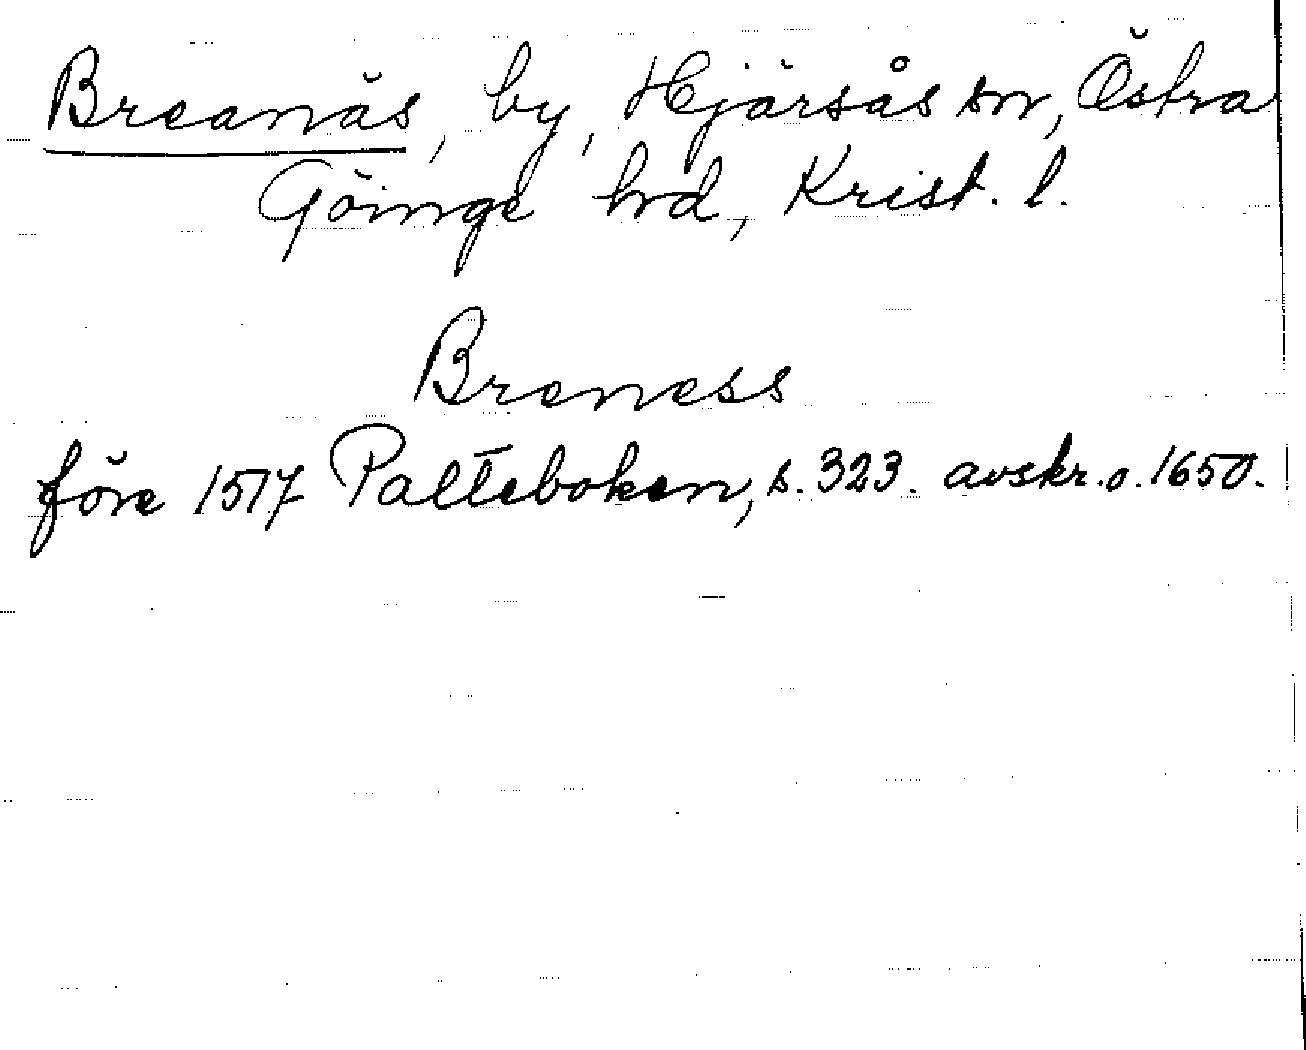 Breanäs, by, Hjärsås sn, Östra
Göinge hd, Krist. l.
Breness
före 1517 Palteboken, s. 323. avskr. o. 1650.